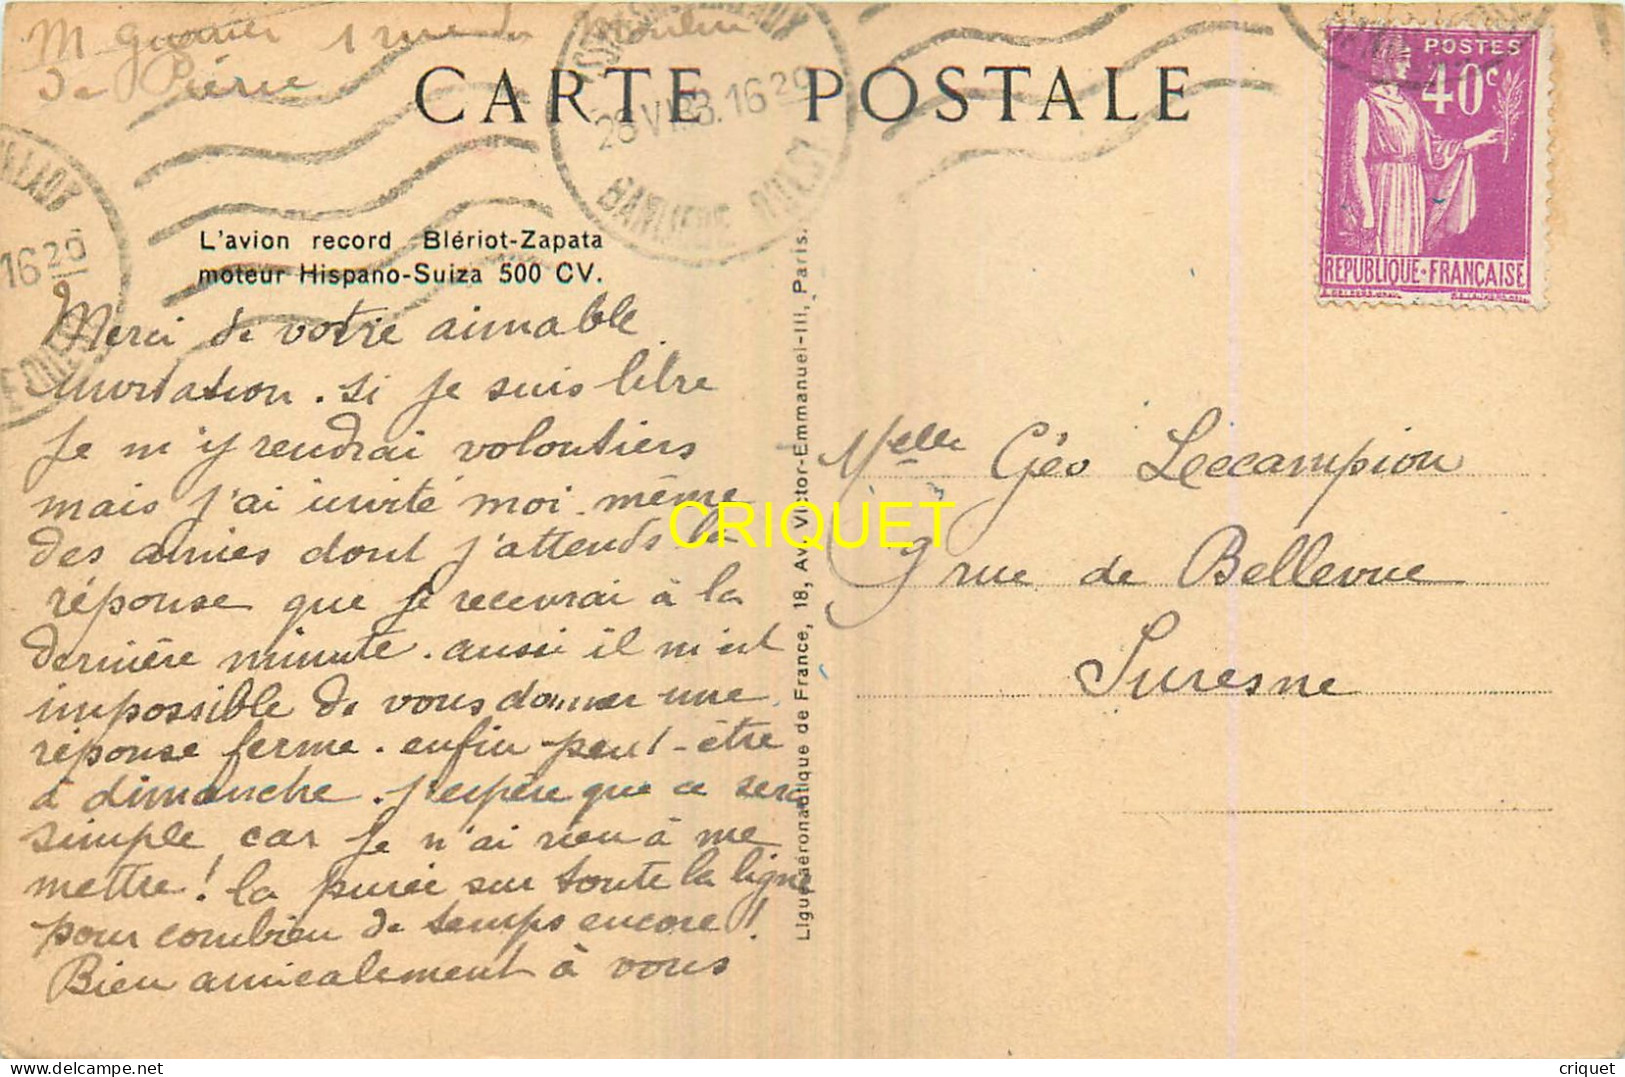 M Guenier 1 rue du Moulin
de Pierre
CARTE POSTALE
28 VI 33. 16 20
BANLIEUE OUEST
16 20
POSTES
40c
REPUBLIQUE·FRANÇAISE
L'avion record Blériot-Zapata
moteur Hispano-Suiza 500 CV.
Merci de votre aimable
invitation. si je suis libre
je m'y rendrai volontiers
mais j'ai invité moi même
des amies dont j'attends la
réponse que je recevrai à la
dernière minute. aussi il m'est
impossible de vous donner une
réponse ferme. enfin peut-être
à dimanche. J'espère que ce sera
simple car je n'ai rien à me
mettre! la purée sur toute la ligne
pour combien de temps encore!
Bien amicalement à vous
Ligue aéronautique de France, 18, Av. Victor-Emmanuel-III, Paris.
Melle Géo Lecampion
9 rue de Bellevue
Suresne
CRIQUET
delcampe.net
criquet